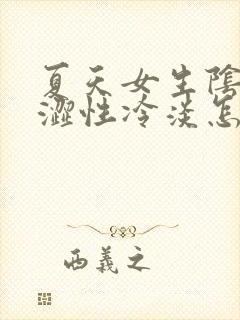 夏天女生陰
澀性冷淡怎
西義之